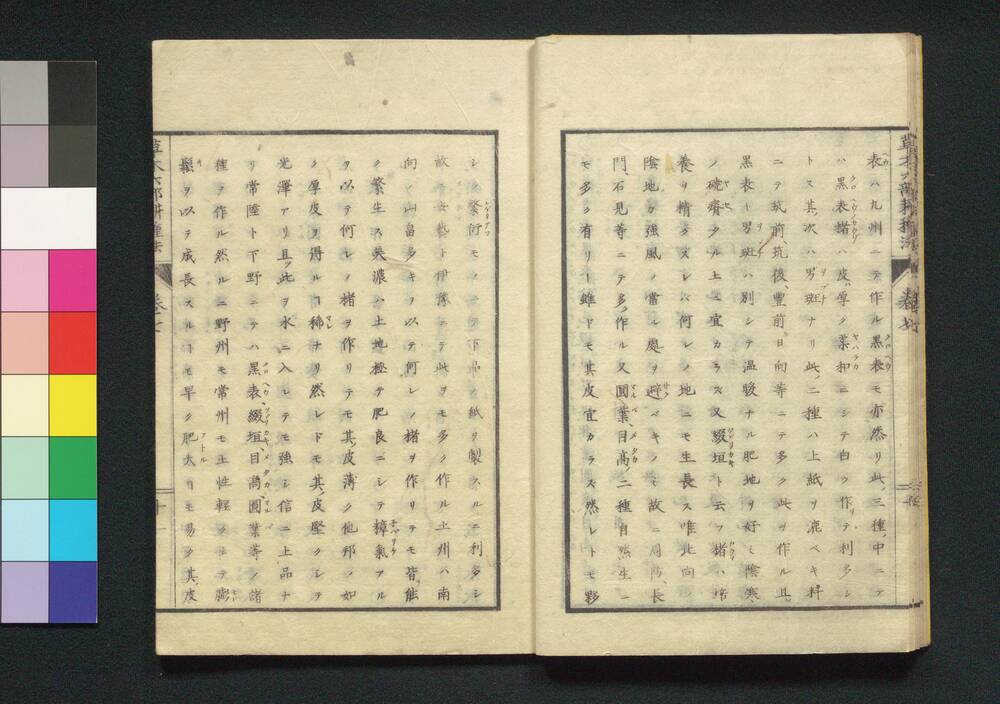 表ハ九州ニテ作ル黒表モ亦然リ此三種ノ中ニテ
ハ黒表楮ハ皮厚ク柔和ニシテ白ク作リテ利多シ
トス其次ハ男斑ナリ此二種ハ上紙ヲ漉ベキ料
ニテ筑前、筑後、豊前、日向等ニテ多ク此ヲ作ル且
黒表ト男斑ハ別シテ温暖ナル肥地ヲ好ミ陰寒
ノ磽瘠タル土ニ宜カラス又綴垣ト云フ楮ハ培
養リ精クスレバ何レノ地ニモ生長ス唯北向ノ
陰地ト強風ノ當ル處ヲ避ベキノミ故ニ周防、長
門、石見等ニテ多ク作ル又圓葉、目高ノ二種自然生ニ
モ多ク有リト雖ドモ其皮宜カラス然レトモ夥
シク繁衍モノニテ下品ノ紙ヲ製スルニ利多シ
故ニ安藝ト伊豫ニテ此ヲモ多ク作ル土州ハ南
向ノ山畠多キヲ以テ何レノ楮ヲ作リテモ皆能
ク繁生ス美濃ハ土地極テ肥良ニシテ樟氣アル
ヲ以テ何レノ楮ヲ作リテモ其皮薄ク他邦ノ如
ク厚皮ヲ得ルコ稀ナリ然レドモ其皮堅クシテ
光澤アリ且ツ此ヲ水ニ入レテモ強シ信ニ上品ナ
リ常陸ト下野ニテハ黒表、綴垣、目高、圓葉等ノ諸
種ヲ作ル然ルニ野州モ常州モ土性軽クシテ膨
鬆ヲ以テ成長スルコトモ早ク肥太リモ易ク其皮
草木六部耕種法
巻七